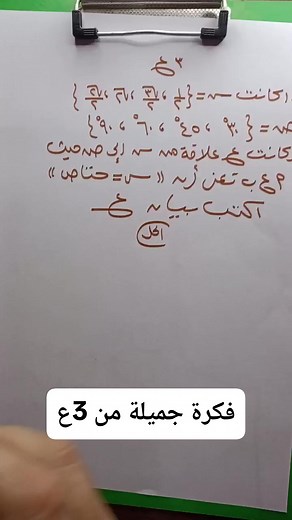 ٣ع
اكانت س = { ١/٢ ، √٣/٢ ، √٢ ، √٢/٢ }
ص = { ٣٠° ، ٤٥° ، ٦٠° ، ٩٠° }
كانت ع علاقة من س إلى ص حيث
م ع ب تعني أن « س = حتا ص »
اكتب بيان ع
الحل
فكرة جميلة من 3ع